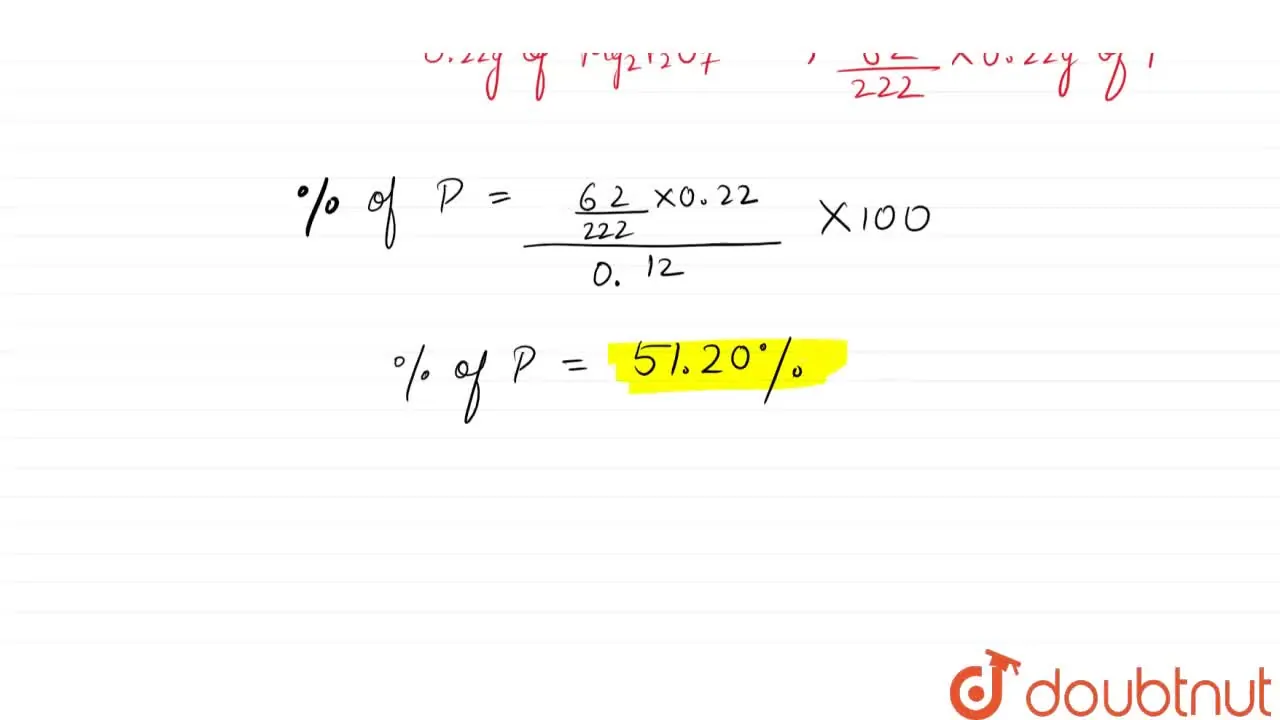 0.22g of Mg2P2O7 , 62/222 × 0.22g of P
% of P = (62/222 × 0.22)/0.12 × 100
% of P = 51.20%
doubtnut